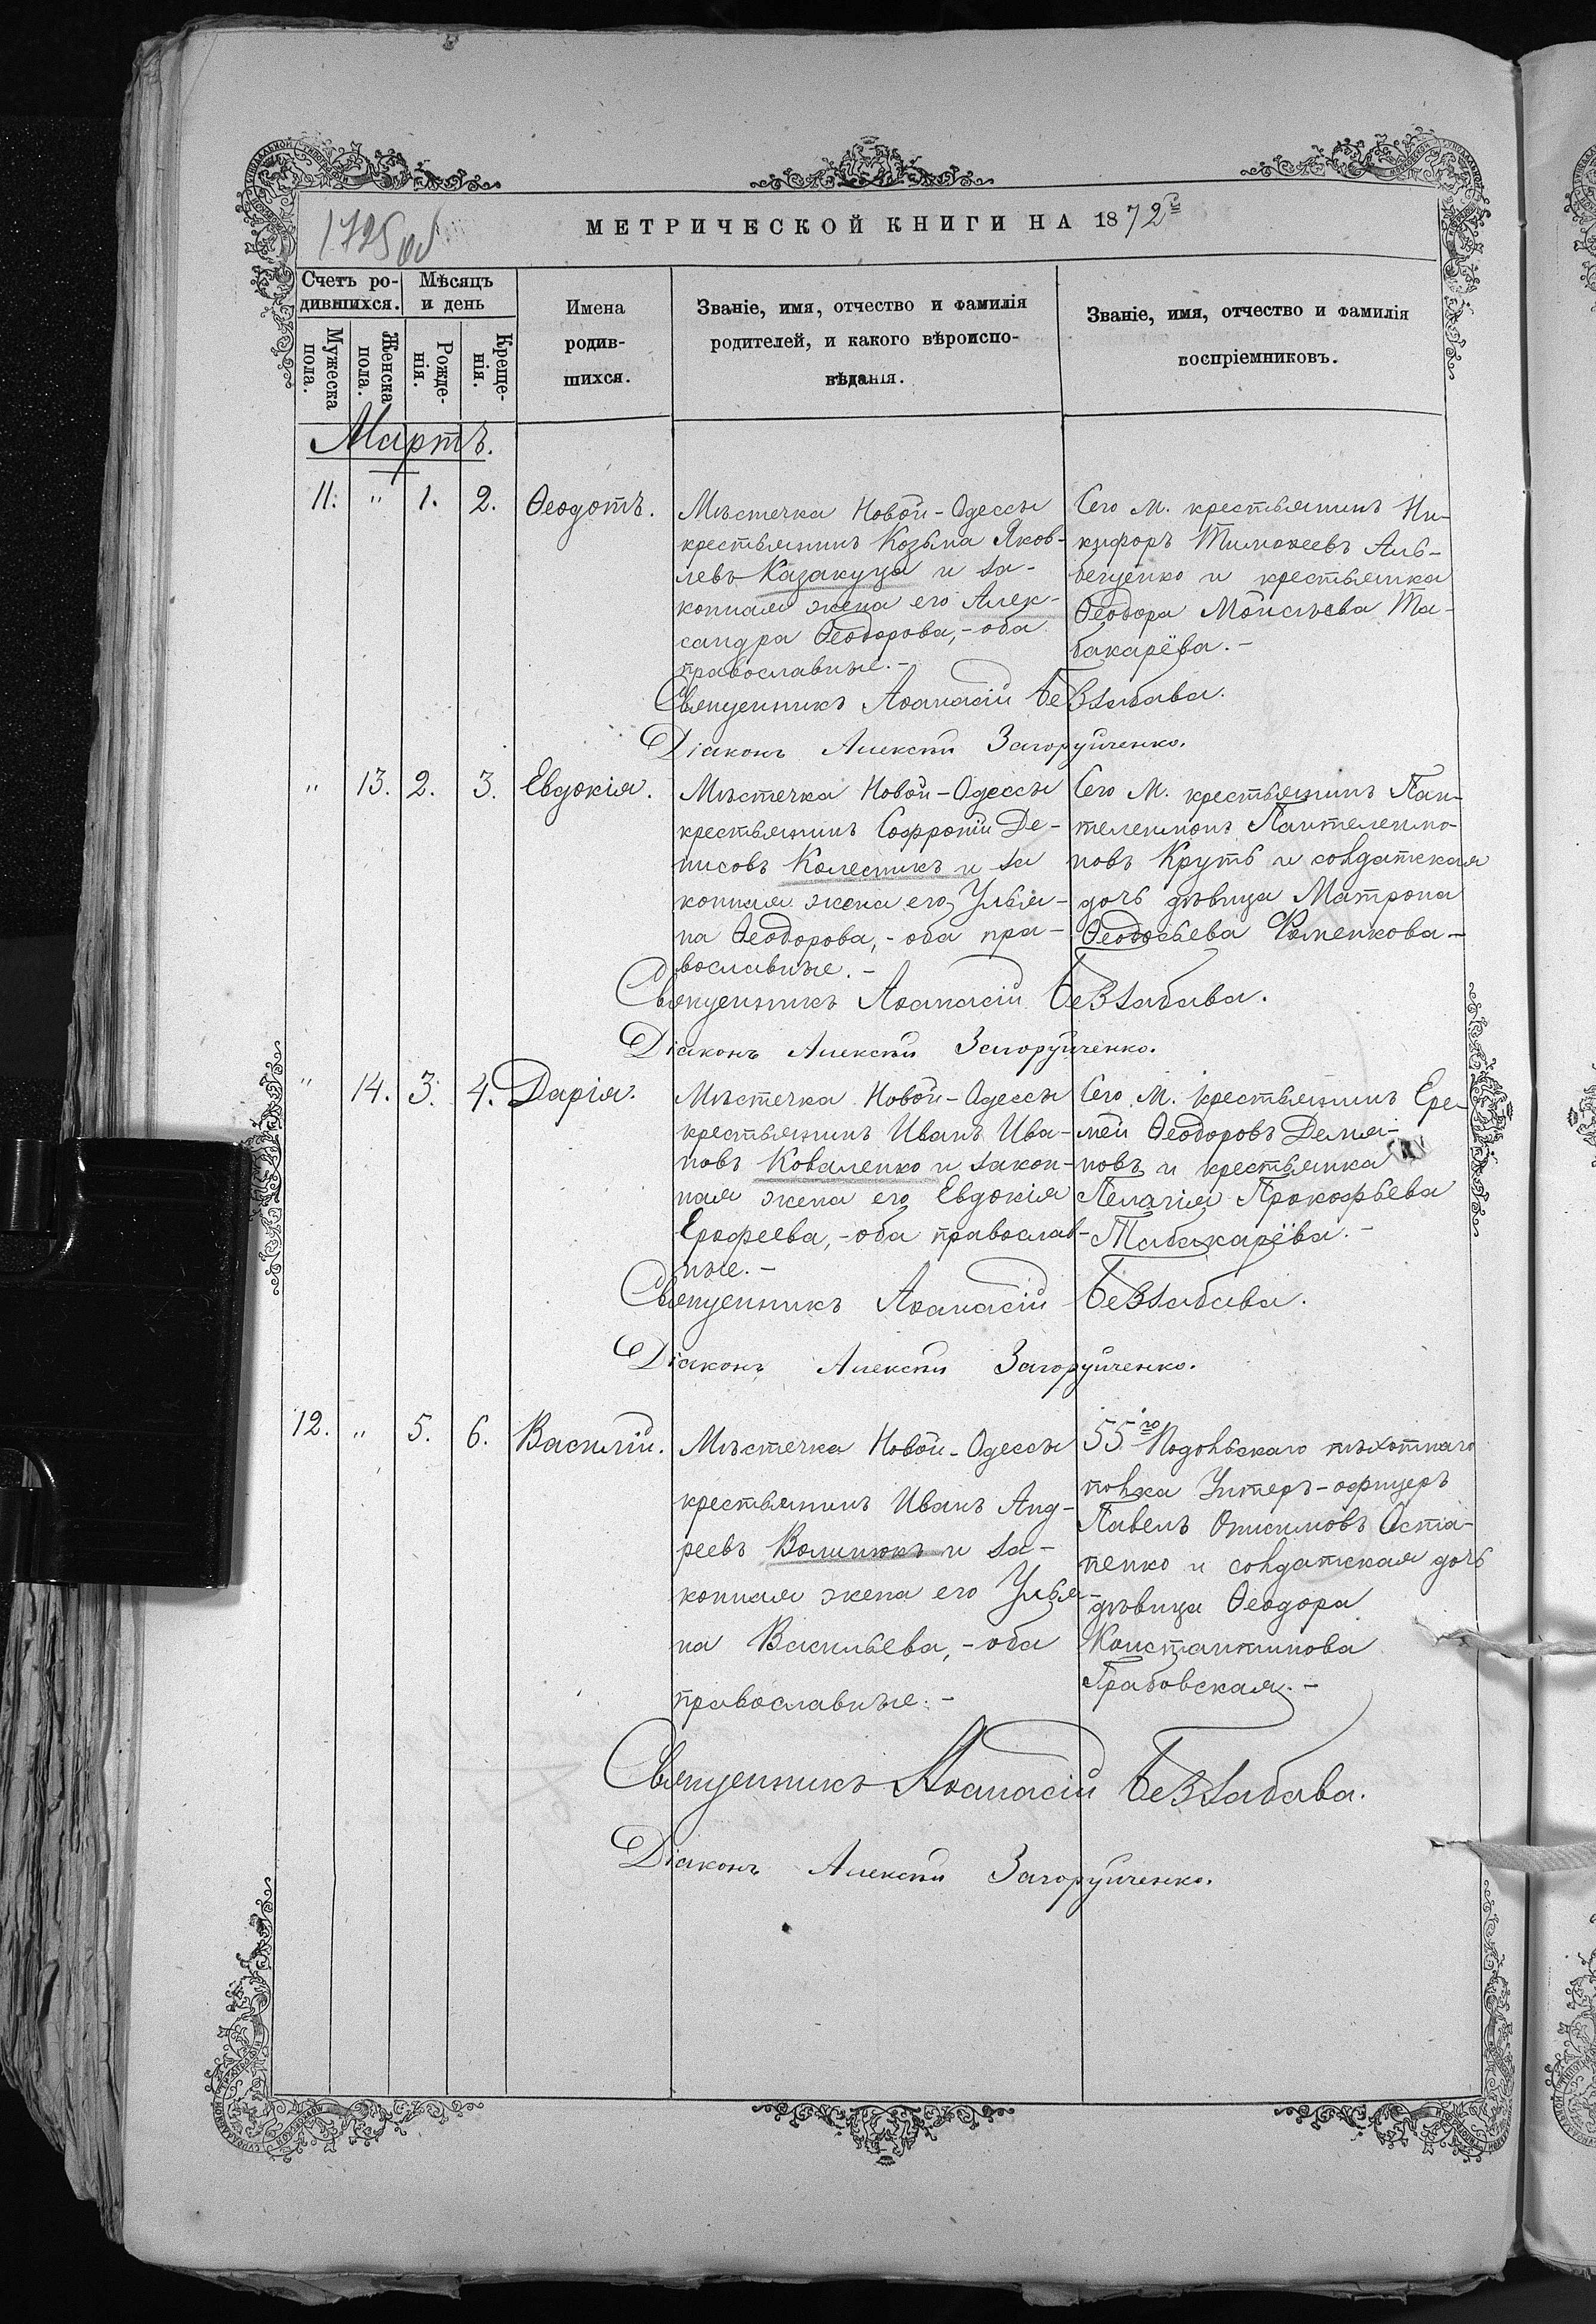 1725 об
МЕТРИЧЕСКОЙ КНИГИ НА 1872й
Счетъ ро-
дившихся.
Мѣсяцъ
и день
Мужеска
пола.
Женска
пола.
Рожде-
нія.
Креще-
нія.
Имена
родив-
шихся.
Званіе, имя, отчество и фамилія
родителей, и какого вѣроиспо-
вѣданія.
Званіе, имя, отчество и фамилія
воспріемниковъ.
Мартъ.
11. " 1. 2. Ѳеодотъ.
Мѣстечка Новой-Одессы
крестьянинъ Козьма Яков-
левъ Казакуца и за-
конная жена его Алек-
сандра Ѳеодорова, - оба
православные. -
Сего м. крестьянинъ Ни-
кифоръ Тимоѳеевъ
и крестьянка
Ѳеодора Моисѣева Та-
бакарёва. -
Священникъ Аѳанасій Беззабава.
Діаконъ Алексѣй Загоруйченко.
" 13. 2. 3. Евдокія.
Мѣстечка Новой-Одессы
крестьянинъ Софроній Де-
нисовъ Колесникъ и за
конная жена его Улья-
на Ѳеодорова, - оба пра-
вославные. -
Сего м. крестьянинъ Пан-
телеимонъ Пантелеимо-
новъ Круть и солдатская
дочь дѣвица Матрона
Ѳеодосьева Фоменкова -
Священникъ Аѳанасій Беззабава.
Діаконъ Алексѣй Загоруйченко.
" 14. 3. 4. Дарія.
Мѣстечка Новой-Одессы
крестьянинъ Иванъ Ива-
новъ Коваленко и закон-
ная жена его Евдокія
Ерофеева, - оба православ-
ные. -
Сего м. крестьянинъ Ере-
мей Ѳеодоровъ Демья-
новъ и крестьянка
Пелагія Прокофьева
Табакарёва. -
Священникъ Аѳанасій Беззабава.
Діаконъ Алексѣй Загоруйченко.
12. " 5. 6. Василій.
Мѣстечка Новой-Одессы
крестьянинъ Иванъ Анд-
реевъ Волинюкъ и за-
конная жена его Улья-
на Васильева, - оба
православные. -
55го Подольскаго пѣхотнаго
полка Унтеръ-офицеръ
Павелъ Онисимовъ Оста-
пенко и солдатская дочь
дѣвица Ѳеодора
Константинова
Грабовская. -
Священникъ Аѳанасій Беззабава.
Діаконъ Алексѣй Загоруйченко.